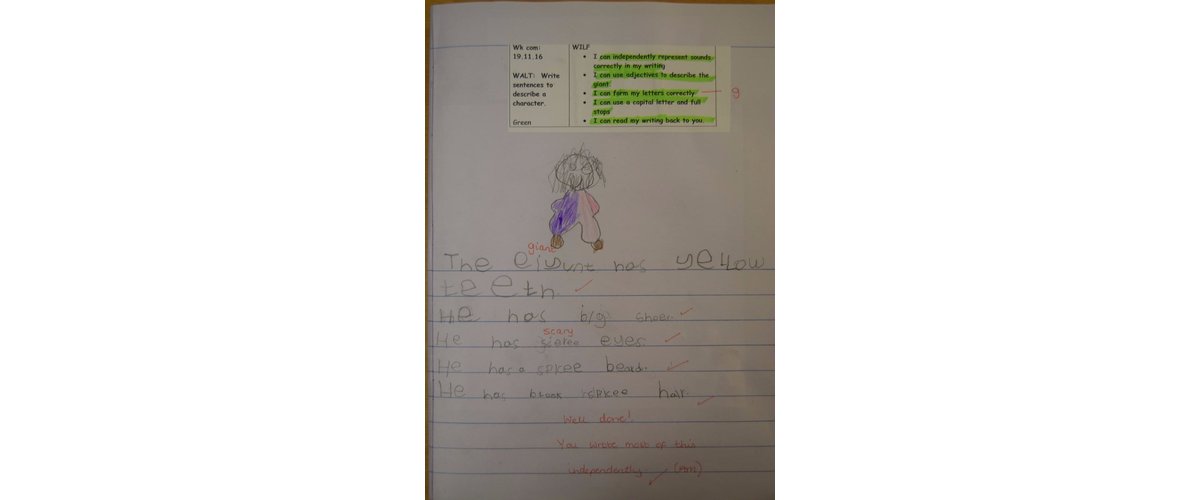 Wk com:
19.11.16
WALT: Write
sentences to
describe a
character.
Green
WILF
• I can independently represent sounds
correctly in my writing
• I can use adjectives to describe the
giant
• I can form my letters correctly
• I can use a capital letter and full
stops
• I can read my writing back to you.
g
giant
The has yellow
teeth.
He has big
scary
He has eyes.
He has a spkee beard.
He has black spkee hair.
Well done!
You wrote most of this
independently.